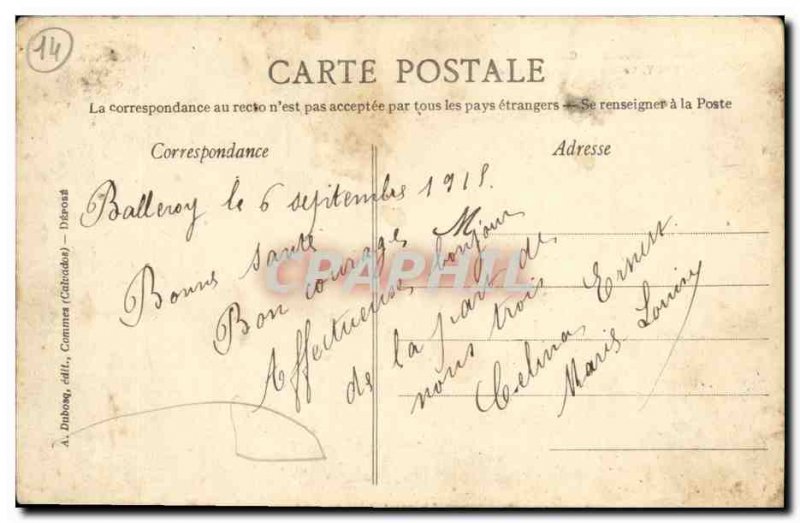 14
CARTE POSTALE
La correspondance au recto n'est pas acceptée par tous les pays étrangers — Se renseigner à la Poste
Correspondance
Adresse
A. Dubosq, édit., Commes (Calvados) — DÉPOSÉ
Balleroy le 6 septembre 1915.
Bonne santé
Bon courage
Affectueuse bonjour
de la part de
nous trois
Celina Ernest
Marie Louise
CPAPHIL